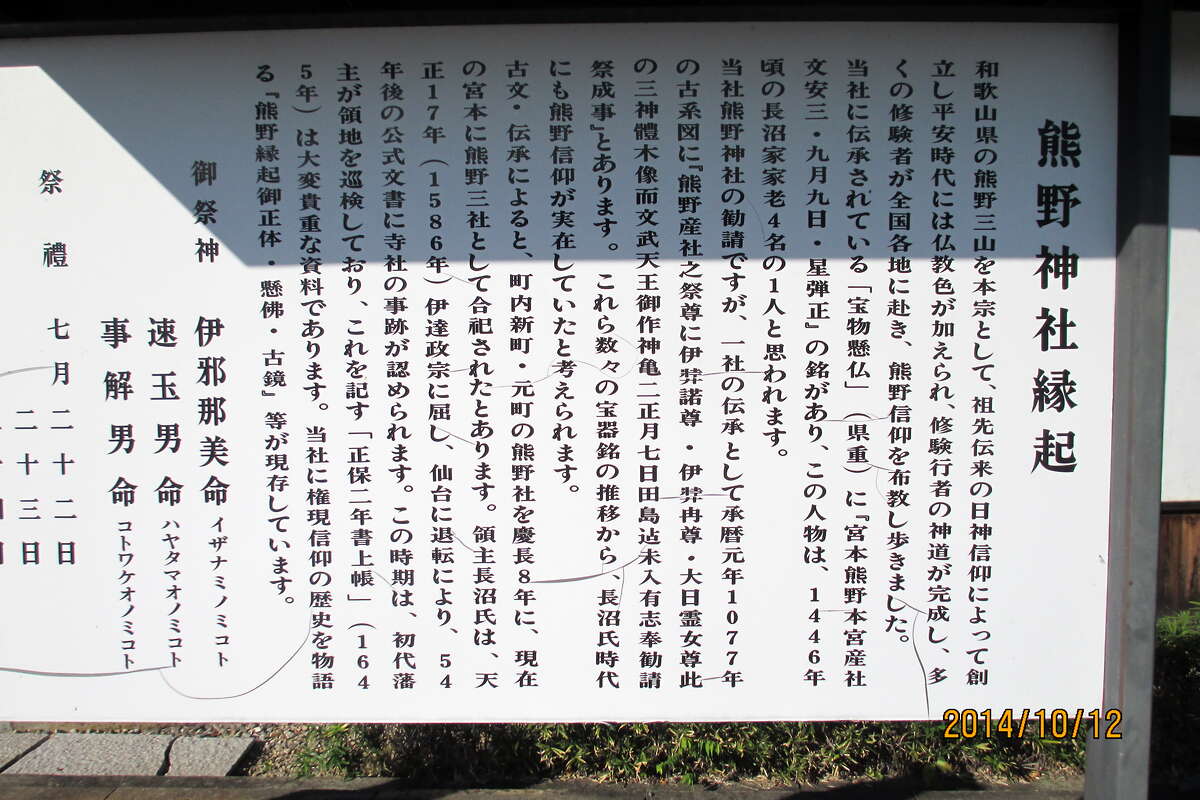 熊野神社縁起
和歌山県の熊野三山を本宗として、祖先伝来の日神信仰によって創
立し平安時代には仏教色が加えられ、修験行者の神道が完成し、多
くの修験者が全国各地に赴き、熊野信仰を布教し歩きました。
当社に伝承されている「宝物懸仏」（県重）に『宮本熊野本宮産社
文安三・九月九日・星弾正』の銘があり、この人物は、1446年
頃の長沼家家老4名の1人と思われます。
当社熊野神社の勧請ですが、一社の伝承として承暦元年1077年
の古系図に『熊野産社之祭尊に伊弉諾尊・伊弉冉尊・大日霊女尊此
の三神體木像而文武天王御作神亀二正月七日田島迠未入有志奉勧請
祭成事』とあります。これら数々の宝器銘の推移から、長沼氏時代
にも熊野信仰が実在していたと考えられます。
古文・伝承によると、町内新町・元町の熊野社を慶長8年に、現在
の宮本に熊野三社として合祀されたとあります。領主長沼氏は、天
正17年（1586年）伊達政宗に屈し、仙台に退転により、54
年後の公式文書に寺社の事跡が認められます。この時期は、初代藩
主が領地を巡検しており、これを記す「正保二年書上帳」（164
5年）は大変貴重な資料であります。当社に権現信仰の歴史を物語
る『熊野縁起御正体・懸佛・古鏡』等が現存しています。
御祭神 伊邪那美命 イザナミノミコト
速玉男命 ハヤタマオノミコト
事解男命 コトワケオノミコト
祭禮 七月二十二日
二十三日
2014/10/12